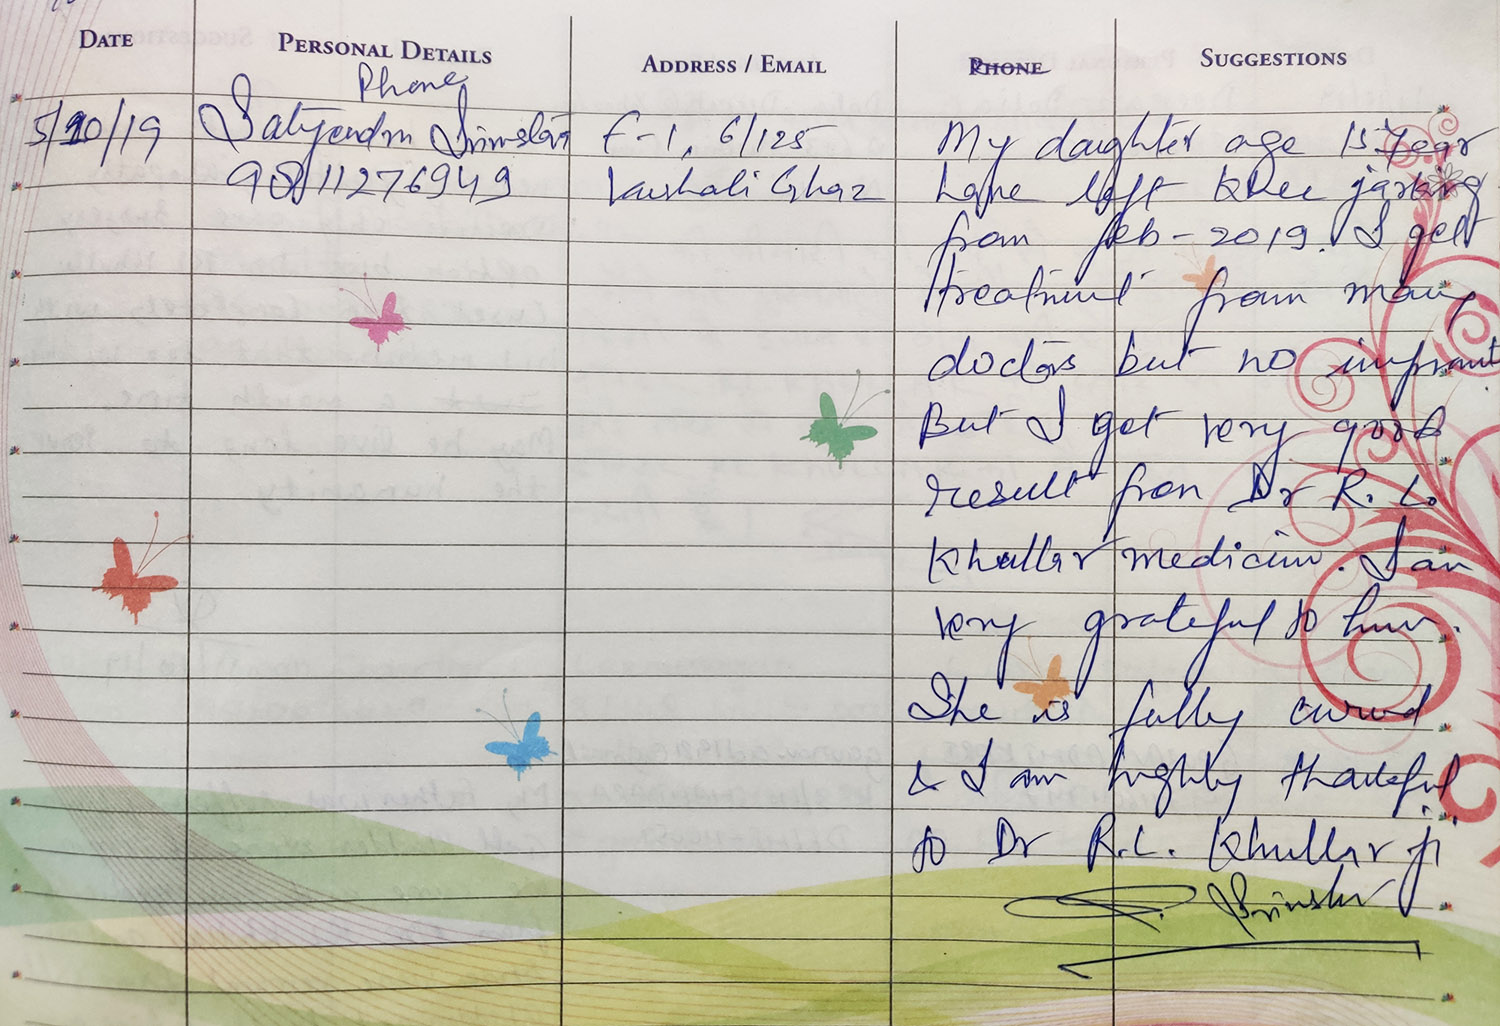 DATE PERSONAL DETAILS ADDRESS / EMAIL PHONE SUGGESTIONS
Phone
5/10/19 Satyendra Srivastav F-1, 6/125 My daughter age 15 Year
9811276949 Vaishali Ghaz have left knee jarking
from feb-2019. I get
treatment from many
doctors but no improvt
But I get very good
result from Dr R. L.
Khullar medicine. I am
very grateful to him.
She is fully cured
& I am highly thankful
to Dr R.L. Khullar ji